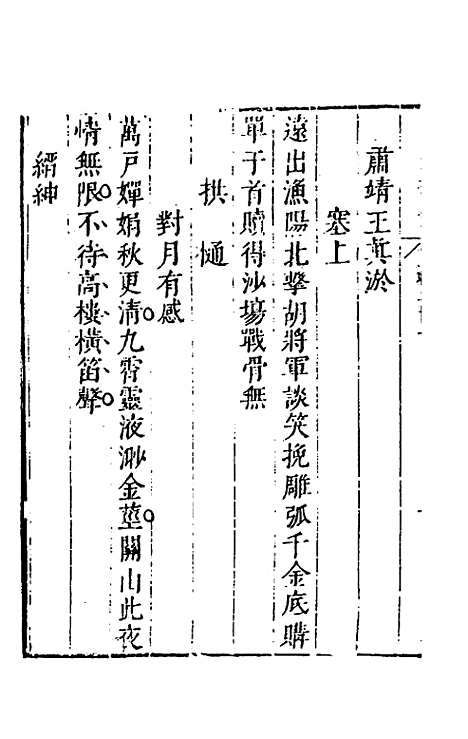 肅靖王真淤
塞上
遠出漁陽北擊胡將軍談笑挽雕弧千金底購
單于首贖得沙場戰骨無
拱樋
對月有感
萬戶嬋娟秋更清九霄靈液渺金莖關山此夜
情無限不待高樓橫笛聲
縉紳